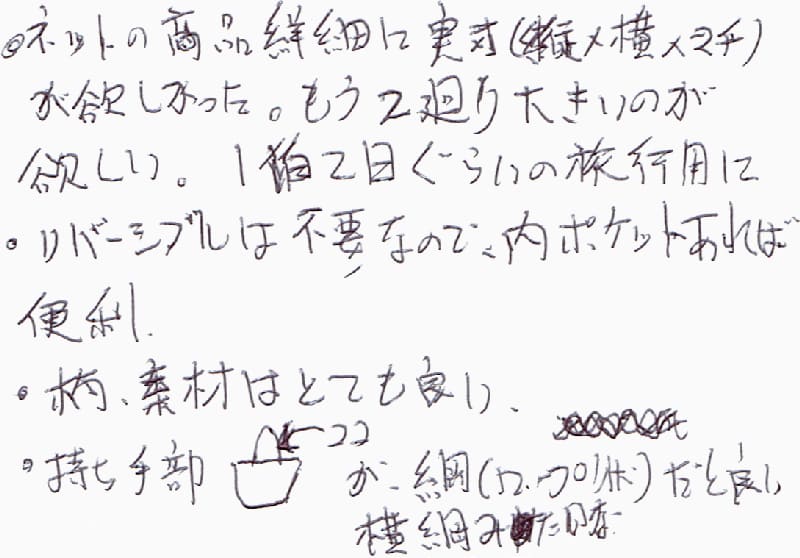 ◎ネットの商品詳細に実寸(縦×横×マチ)
が欲しかった。もう2廻り大きいのが
欲しい。1泊2日ぐらいの旅行用に
・リバーシブルは不要なので、内ポケットあれば
便利.
・柄、素材はとても良い、
・持ち手部 ココ
が、綱(ロープ)だと良い
横綱みたい